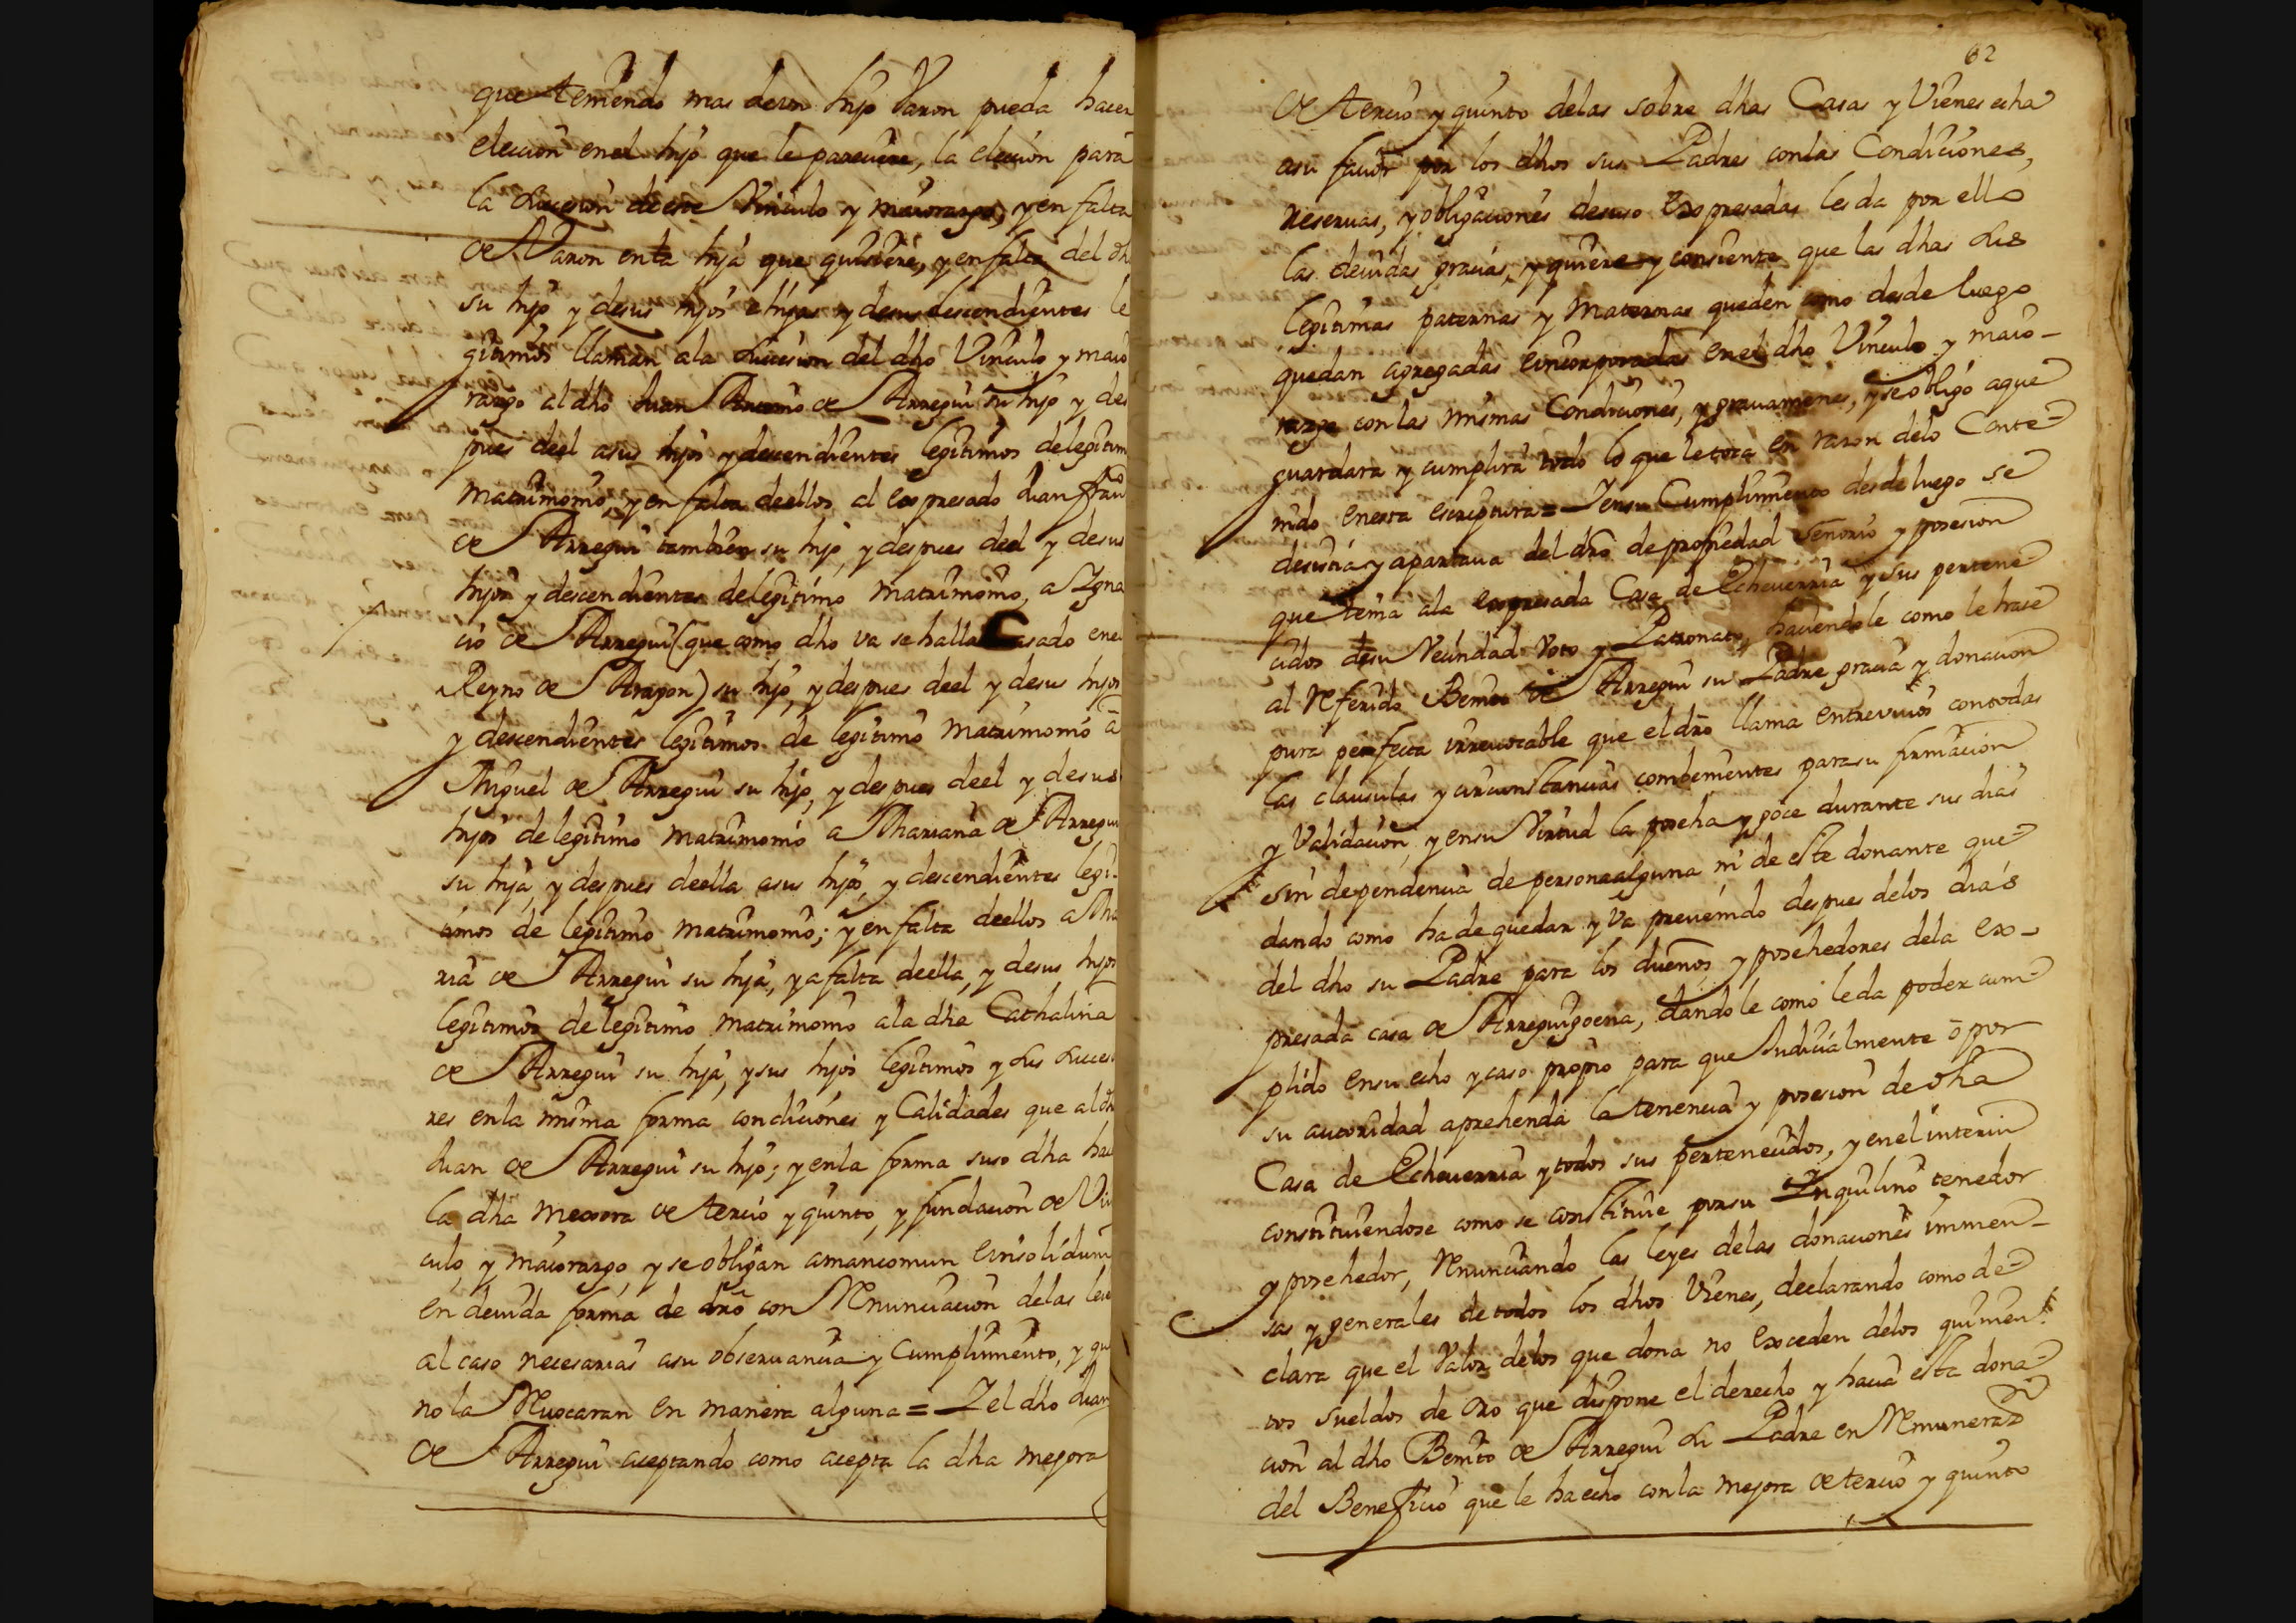 que teniendo mas de un hijo Varon pueda hacer
eleccion en el hijo que le pareciere, la elecion para
la sucesion de este Vinculo y maiorazgo, y en falta
de Varon en la hija que quisiere, y en falta del dho
su hijo y de sus hijos e hijas y de sus descendientes le
gitimos llaman ala sucesion del dho Vinculo y maio
razgo al dho Juan Antonio de Arregui su hijo y des
pues deel asus hijos y descendientes legitimos de legitimo
matrimonio, y en falta deellos al expresado Juan franco
de Arregui tambien su hijo, y despues deel y desus
hijos y descendientes delegitimo matrimonio, a Igna
cio de Arregui (que como dho va se halla Casado enel
Reyno de Aragon) su hijo, y despues deel y desus hijos
y descendientes legitimos de legitimo matrimonio a
Miguel de Arregui su hijo, y despues deel y desus
hijos delegitimo matrimonio a Mariana de Arregui
su hija, y despues deella asus hijos, y descendientes legi-
timos de legitimo matrimonio; y en falta deellos a Ma
ria de Arregui su hija, y a falta deella, y desus hijos
legitimos delegitimo matrimonio ala dha Cathalina
de Arregui su hija, y sus hijos legitimos y sus suceso
res enla misma forma condiciones y Calidades que al dho
Juan de Arregui su hijo; y enla forma suso dha hacen
la dha mexora de tercio y quinto, y fundacion de Vin
culo, y maiorazgo, y se obligan amancomun einsolidum
en deuida forma de dro con Renunciacion delas leies
al caso necesarias asu obseruancia y Cumplimiento, y que
no la Reuocaran en manera alguna = I el dho Juan
de Arregui aceptando como acepta la dha mejora
62
de tercio y quinto delas sobre dhas Casas y Vienes echa
asu fauor por los dhos sus Padres conlas Condiciones,
reseruas, y obligaciones desuso Expresadas les da por ello
las deuidas gracias, y quiere y consiente que las dhas sus
legitimas paternas y Maternas queden como desde luego
quedan agregadas eincorporadas en el dho Vinculo y maio-
razgo con las mismas Condiciones, y grauamenes, y se obligó aque
guardara y cumplira todo lo que le toca en razon delo Conte-
nido enesta escriptura = I en su Cumplimiento desde luego se
desistia y apartaua del dro de propiedad señorio y posesion
que tenia ala expresada Casa de Echeuerria y sus pertene
cidos desu Vecindad Voto y Patronato, haciendole como le hace
al Referido Benito de Arregui su Padre gracia y donacion
pura perfecta irreuocable que el dro llama entreviuos contodas
las clausulas y circunstancias combenientes para su firmacion
y Validacion, y ensu Virtud la poseha y goce durante sus dias
sin dependencia de persona alguna ni de este donante que
dando como ha de quedar y Va preuenido despues delos dias
del dho su Padre para los dueños y posehedores dela ex-
presada casa de Arreguigoena, dandole como le da poder cum-
plido ensu echo y caso propio para que Judicialmente ó por
su autoridad aprehenda la tenencia y posesion de dha
Casa de Echeuerria y todos sus pertenecidos, y en el interin
constituiendose como se constituie por su Inquilino tenedor
y posehedor, Renunciando las leyes delas donaciones immen-
sas y generales de todos los dhos Vienes, declarando como de-
clara que el Valor delos que dona no exceden delos quinien-
tos sueldos de oro que dispone el derecho y hacia esta dona-
cion al dho Benito de Arregui su Padre en Remuneraon
del Beneficio que le ha echo conla mejora de tercio y quinto